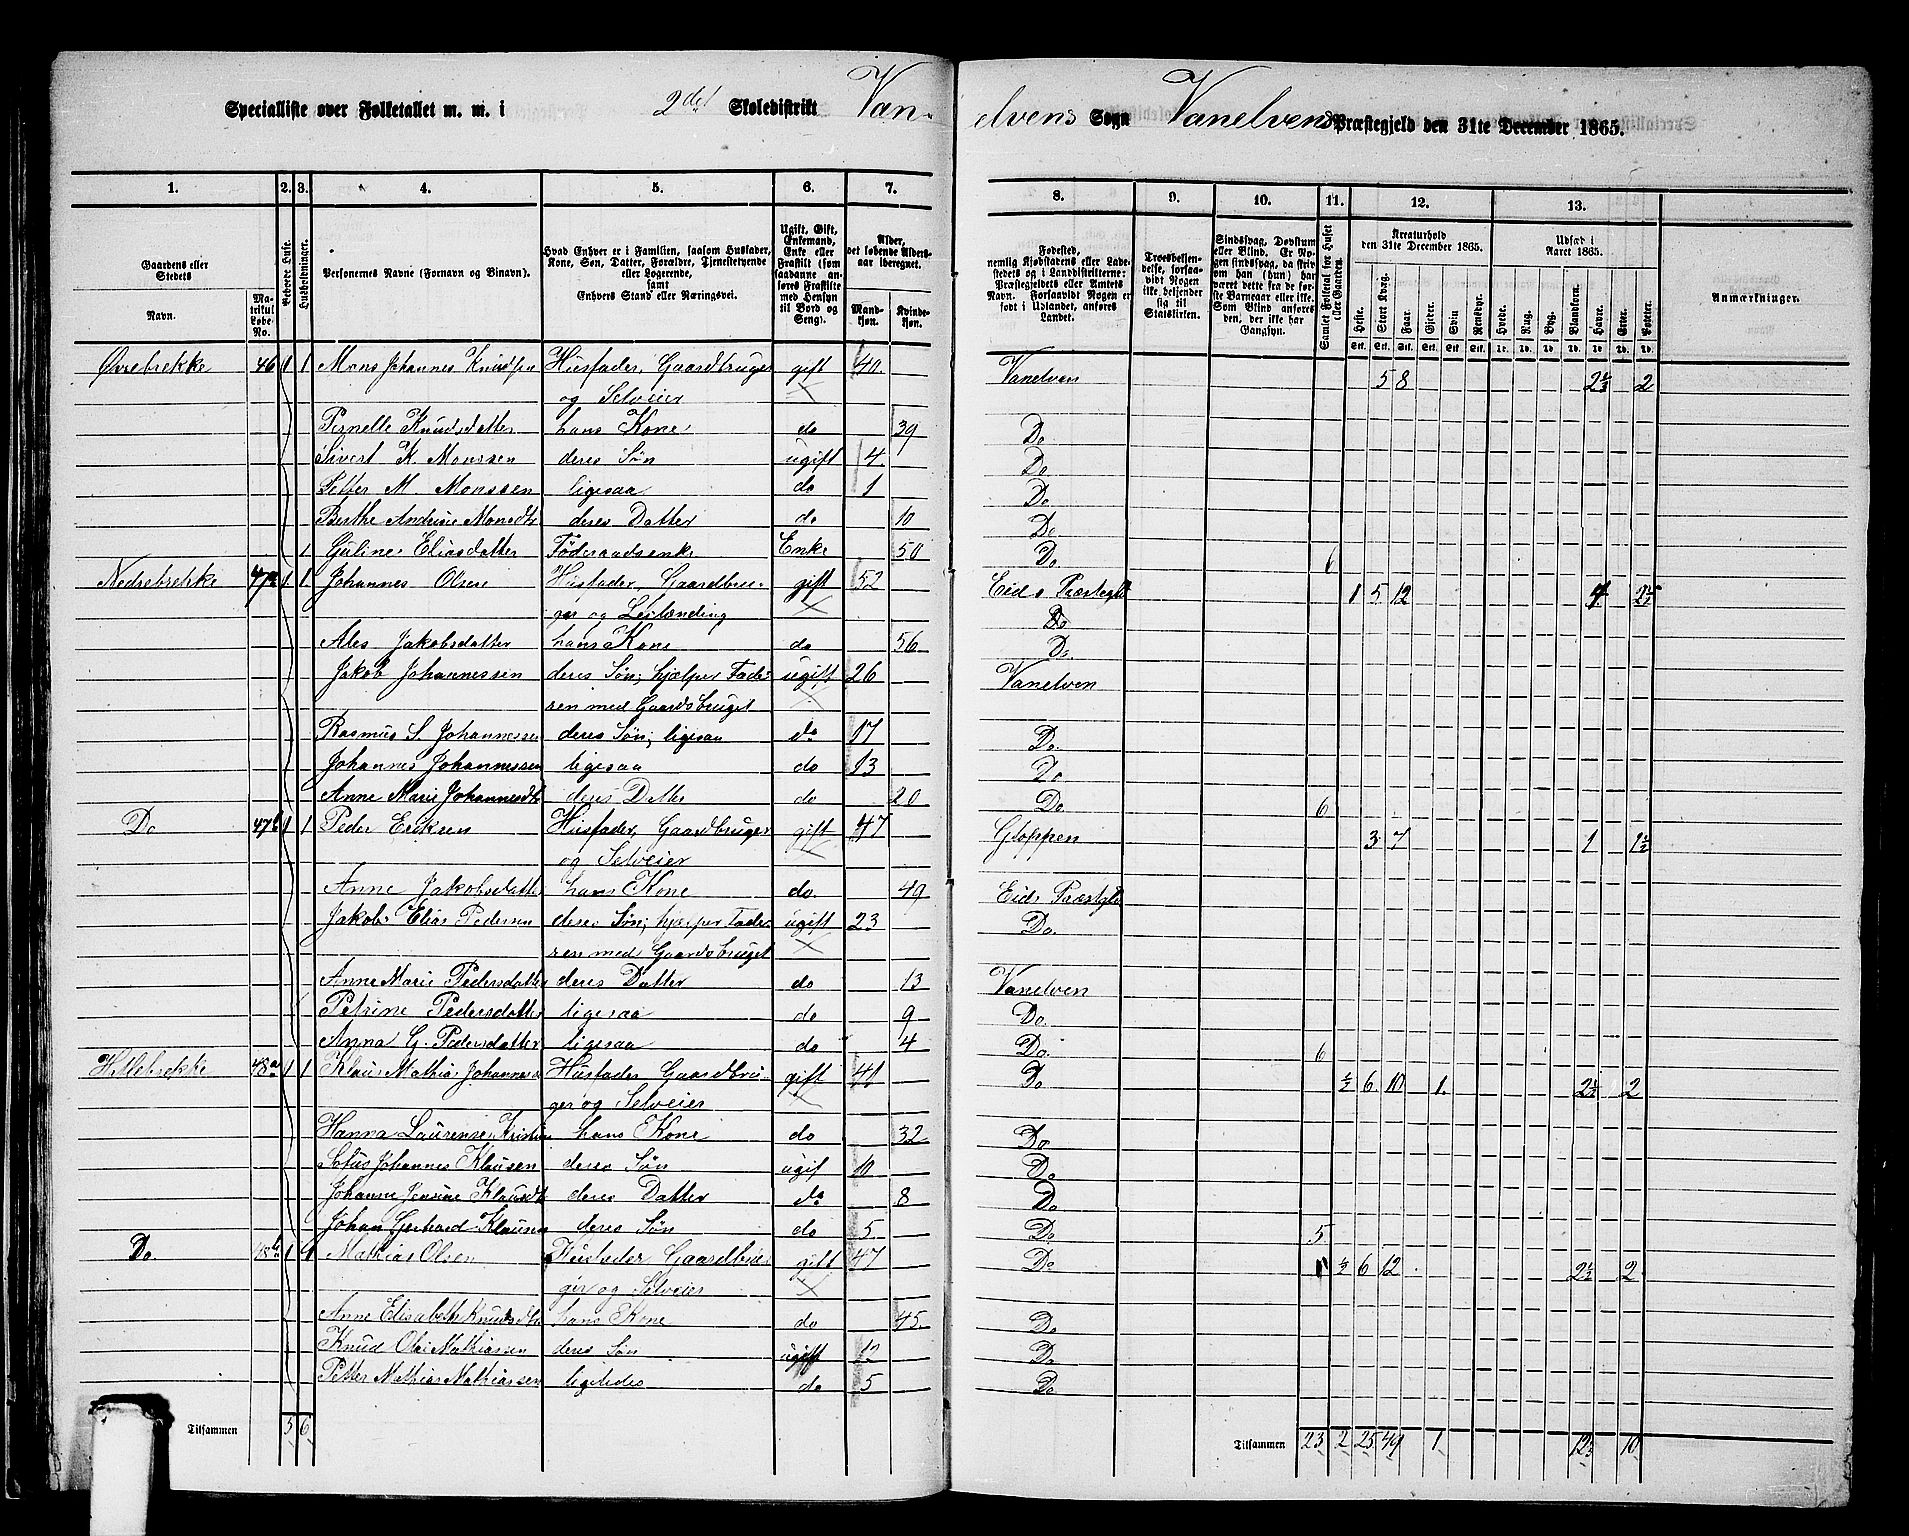 Specialliste over Folketallet m. m. i 2det Skoledistrikt Van-
elvens Sogn Vanelvens Præstegjeld den 31te December 1865.
1. 2. 3. 4. 5. 6. 7. 8. 9. 10. 11. 12. 13.
Gaardens eller Stedets Navn.
Matrikul Løbe-No.
Beboede Huse.
Husholdninger.
Personernes Navne (Fornavn og Binavn).
Hvad Enhver er i Familien, saasom Husfader, Kone, Søn, Datter, Forældre, Tjenestetyende eller Logerende, samt Enhvers Stand eller Næringsvei.
Ugift, Gift, Enkemand, Enke eller Fraskilt (som saadanne anføres Fraskilte med Hensyn til Bord og Seng).
Alder, det løbende Alders-aar iberegnet.
Mandkjøn. Kvindekjøn.
Fødested, nemlig Kjøbstadens eller Ladestedets og i Landdistrikterne: Præstegjeldets eller Amtets Navn. Forsaavidt Nogen er født i Udlandet, anføres Landet.
Troesbekjendelse, forsaavidt Nogen ikke bekjender sig til Statskirken.
Sindssvag, Døvstum eller Blind. Er Nogen sindssvag, da skrives om han (hun) har været dette fra de første Barneaar eller ikke. Som Blind anføres den, der ikke har Gangsyn.
Samlet Folketal for Huset eller Gaarden.
Kreaturhold den 31te December 1865.
Heste. Stort Kvæg. Faar. Gjeder. Svin. Rensdyr.
Udsæd i Aaret 1865.
Hvede. Rug. Byg. Blandkorn. Havre. Erter. Poteter.
Anmærkninger.
Øvrebrekke 46 1 1 Mons Johannes Knudsen Husfader, Gaardbruger gift 40 Vanelven 5 8 2½ 2
og Selveier
Pernelle Knudsdatter hans Kone do 39 Do
Sivert K. Monssen deres Søn ugift 4 Do
Petter M. Monssen ligesaa do 1 Do
Berthe Andrine Monsdtr deres Datter do 10 Do
1 Guline Eliasdatter Føderaadsenke Enke 50 Do 6
Nedrebrekke 47a 1 1 Johannes Olsen Husfader, Gaardbru- gift 52 Eids Præstegld 1 5 12 4 2½
ger og Leilænding Do
Ales Jakobsdatter hans Kone do 56 Do
Jakob Johannessen deres Søn; hjælper Fade- ugift 26 Vanelven
ren med Gaardsbruget
Rasmus S. Johannessen deres Søn; ligesaa do 17 Do
Johannes Johannessen ligesaa do 13 Do
Anne Marie Johannesdtr deres Datter do 20 Do 6
Do 47b 1 1 Peder Eriksen Husfader, Gaardbruger gift 47 Gloppen 3 7 1 1½
og Selveier
Anne Jakobsdatter hans Kone do. 49 Eids Præstgld
Jakob Elias Pedersen deres Søn; hjælper Fade- ugift 23 Do.
ren med Gaardsbruget
Anne Marie Pedersdatter deres Datter do 13 Vanelven
Petrine Pedersdatter ligesaa do 9 Do.
Anna G. Pedersdatter ligesaa do 4 Do. 6
Hillebrekke 48a 1 1 Klaus Mathias Johannesen Husfader Gaardbru- gift 41 Do ½ 6 10 1. 2½ 2
ger og Selveier
Hanna Laurense Kristine hans Kone do 32 Do
Johannes Klausen deres Søn ugif 10 Do
Johanne Jensine Klausdtr deres Datter do 8 Do
Johan Gerhard Klausen deres Søn do 5 Do 5
Do. 48b 1 1 Mathias Olsen Husfader Gaardbru- gift 47 Do ½ 6 12 2½ 2
ger og Selveier
Anne Elisabeth Knudsdtr hans Kone do 45. Do
Knud Olai Mathiassen deres Søn ugift 12 Do
Petter Mathias Mathiassen ligeledes do 5 Do
Tilsammen 5 6
Tilsammen 23 2 25 49 1 12½ 10